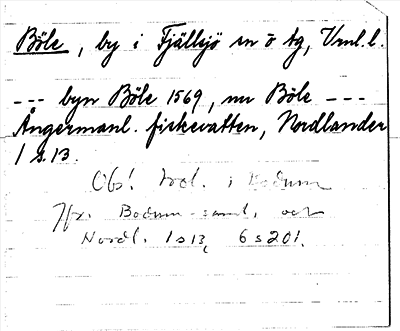 Böle, by i Fjällsjö sn o tg, Vrnl. l.
--- byn Böle 1569, nu Böle ---
Ångermanl. fiskevatten, Nordlander
1 s. 13.
Obs! trol. i Bodum
Jfr. Bodum-saml. och
Nordl. 1 s 13, 6 s 201.